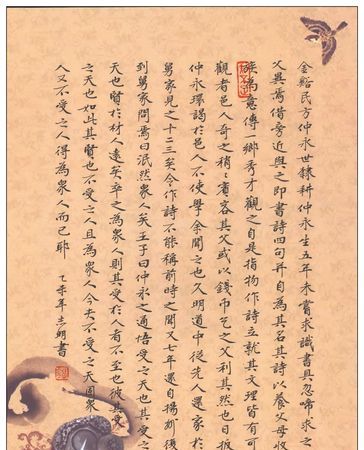 金谿民方仲永世隸耕仲永生五年未嘗求識書具忽啼求之
父異焉借旁近與之即書詩四句并自為其名其詩以養父母收
族為意傳一鄉秀才觀之自是指物作詩立就其文理皆有可
觀者邑人奇之稍稍賓客其父或以錢幣乞之父利其然也日扳
仲永環謁於邑人不使學余聞之也久明道中從先人還家於
舅家見之十二三矣令作詩不能稱前時之聞又七年還自揚州復
到舅家問焉曰泯然衆人矣王子曰仲永之通悟受之天也其受之
天也賢於材人遠矣卒之為衆人則其受於人者不至也彼其受
之天也如此其賢也不受之人且為衆人今夫不受之天固衆
人又不受之人得為衆人而已耶 乙未年志明書